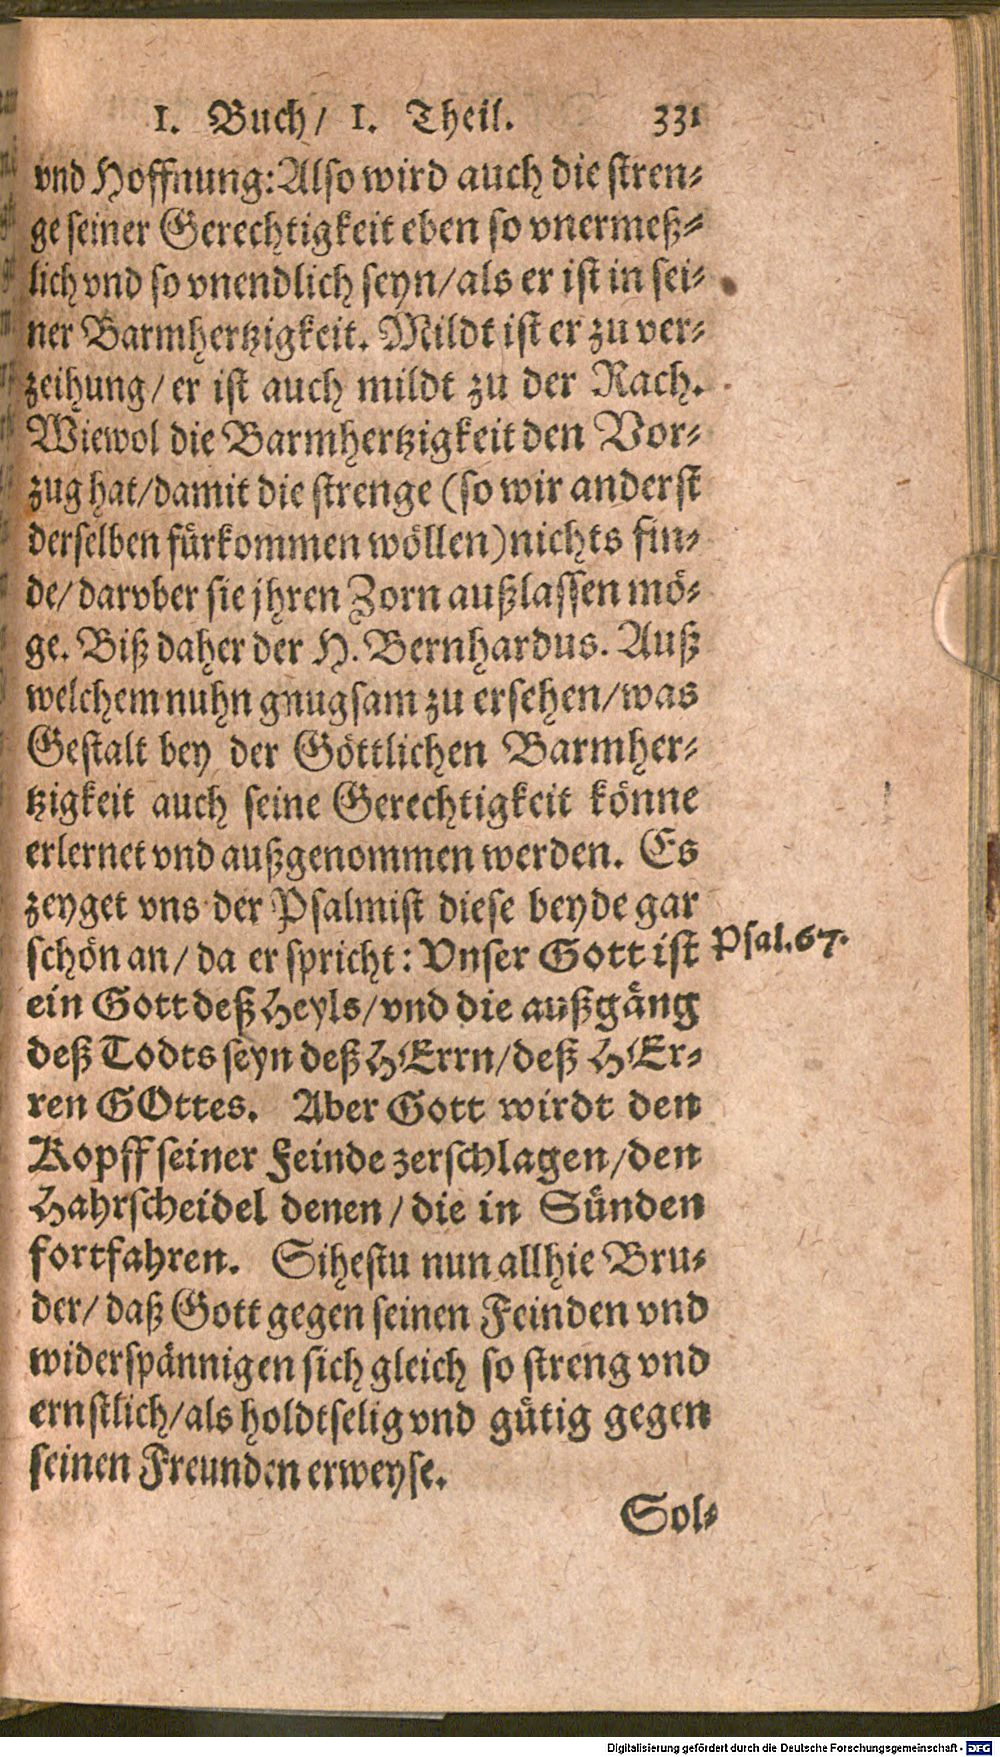 1. Buch/ 1. Theil. 331
vnd Hoffnung: Also wird auch die stren⸗
ge seiner Gerechtigkeit eben so vnermeß⸗
lich vnd so vnendlich seyn/als er ist in sei⸗
ner Barmhertzigkeit. Mildt ist er zu ver⸗
zeihung/er ist auch mildt zu der Rach.
Wiewol die Barmhertzigkeit den Vor⸗
zug hat/damit die strenge (so wir anderst
derselben fürkommen wöllen) nichts fin⸗
de/darvber sie jhren Zorn außlassen mö⸗
ge. Biß daher der H. Bernhardus. Auß
welchem nuhn gnugsam zu ersehen/was
Gestalt bey der Göttlichen Barmher⸗
tzigkeit auch seine Gerechtigkeit könne
erlernet vnd außgenommen werden. Es
zeyget vns der Psalmist diese beyde gar
schön an/da er spricht: Vnser Gott ist
Psal.67.
ein Gott deß Heyls/vnd die außgäng
deß Todts seyn deß HErrn/deß HEr⸗
ren GOttes. Aber Gott wirdt den
Kopff seiner Feinde zerschlagen/den
Hahrscheidel denen/die in Sünden
fortfahren. Sihestu nun allhie Bru⸗
der/daß Gott gegen seinen Feinden vnd
widerspännigen sich gleich so streng vnd
ernstlich/als holdtselig vnd gütig gegen
seinen Freunden erweyse.
Sol⸗
Digitalisierung gefördert durch die Deutsche Forschungsgemeinschaft - DFG